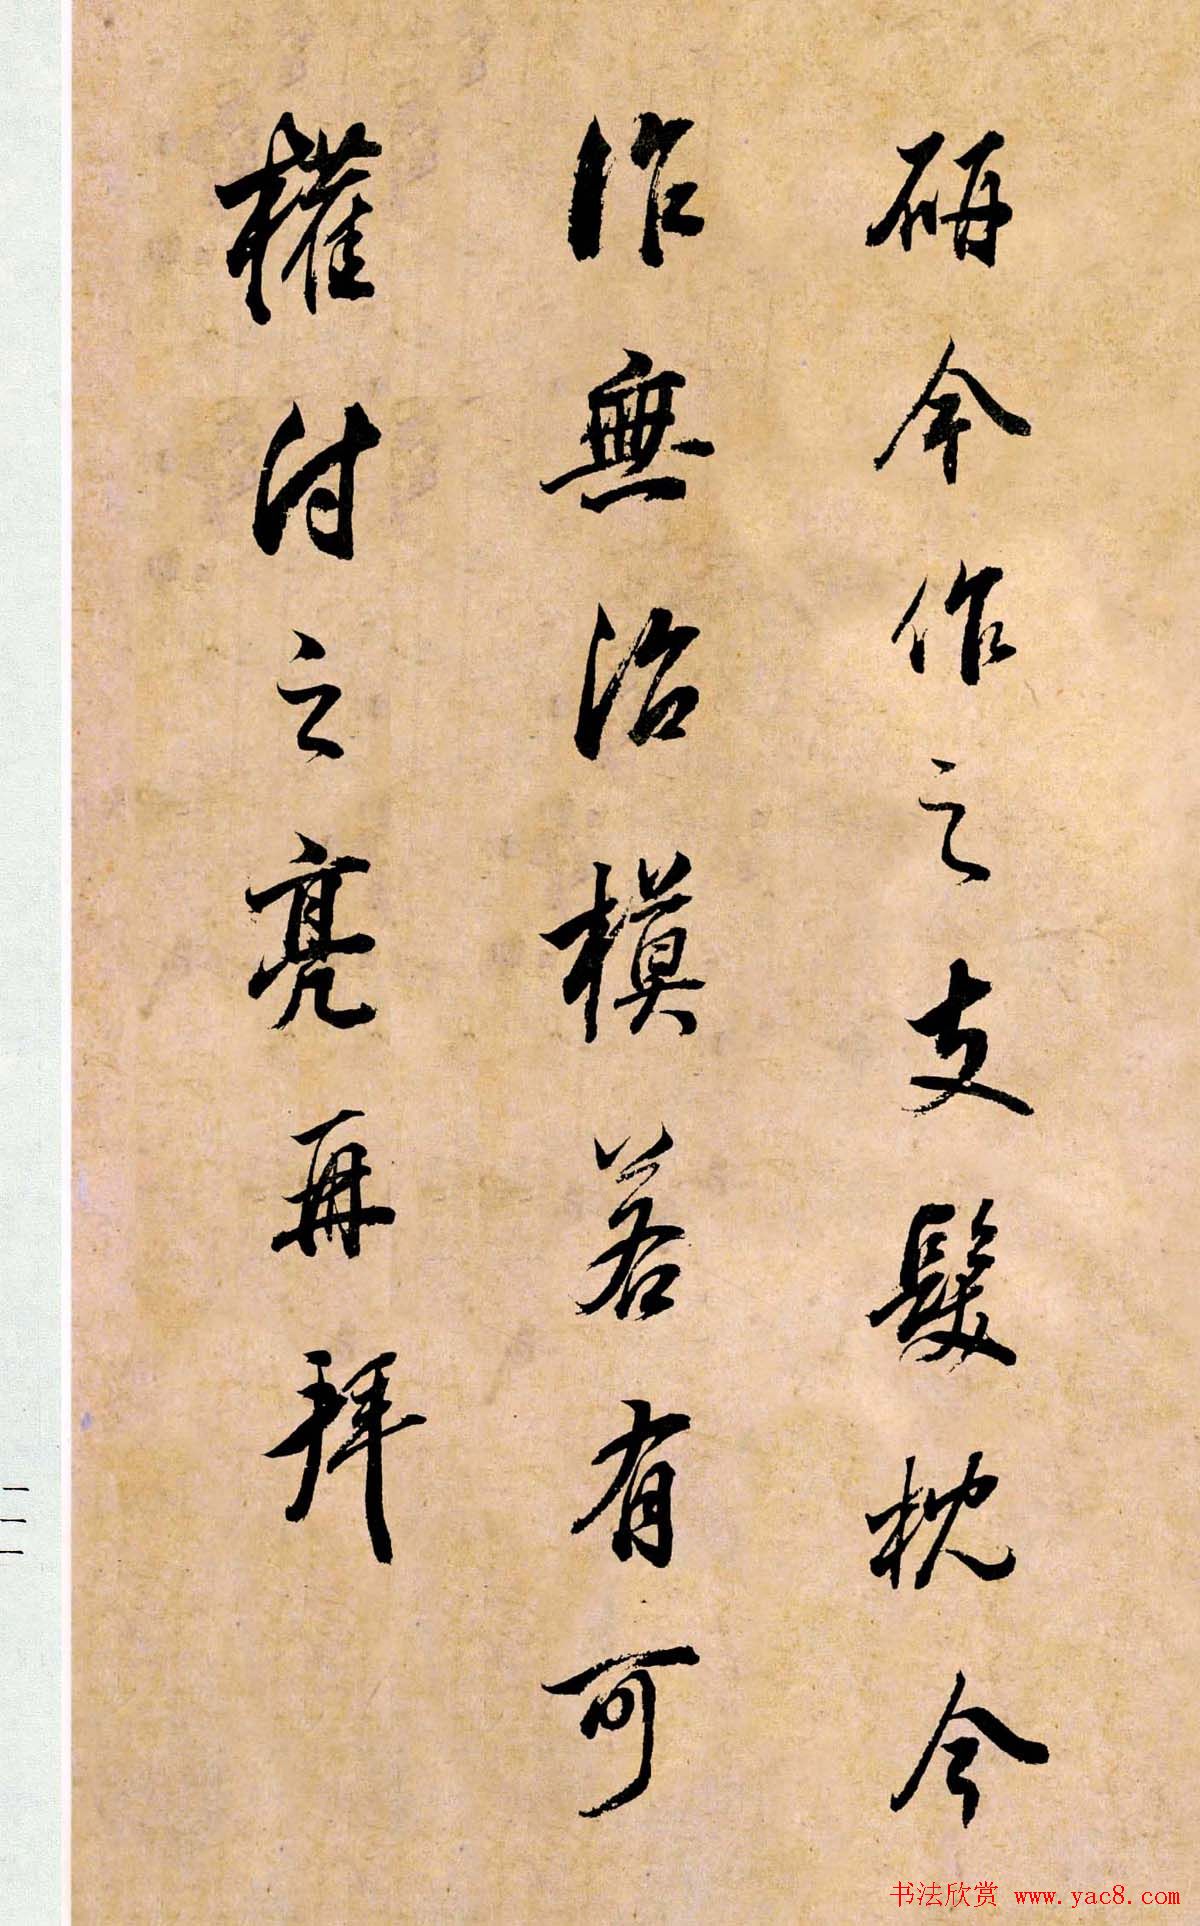 研今作之支髮枕今
作無治模若有可
權付之亮再拜
二二一
书法欣赏 www.yac8.com